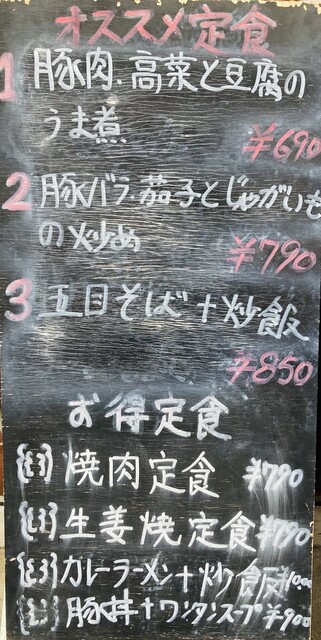 オススメ定食
1 豚肉・高菜と豆腐の
うま煮
¥690
2 豚バラ・茄子とじゃがいも
の炒め
¥790
3 五目そば+炒飯
¥850
お得定食
焼肉定食 ¥790
生姜焼定食 ¥790
カレーラーメン+炒飯
豚丼+ワンタンスープ ¥900